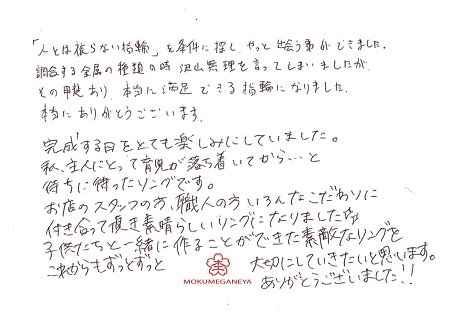 「人とは被らない指輪」を条件に探し、やっと出会う事ができました。
調合する金属の種類の時 沢山無理を言ってしまいましたが
その甲斐あり 本当に満足できる指輪になりました。
本当にありがとうございます。
完成する日をとても楽しみにしていました。
私、主人にとって育児が落ち着いてから…と
待ちに待ったリングです。
お店のスタッフの方、職人の方いろんなこだわりに
付き合って頂き素晴らしいリングになりました☆
子供たちと一緒に作ることができた素敵なリングを
これからもずっとずっと 大切にしていきたいと思います。
MOKUMEGANEYA ありがとうございました!!